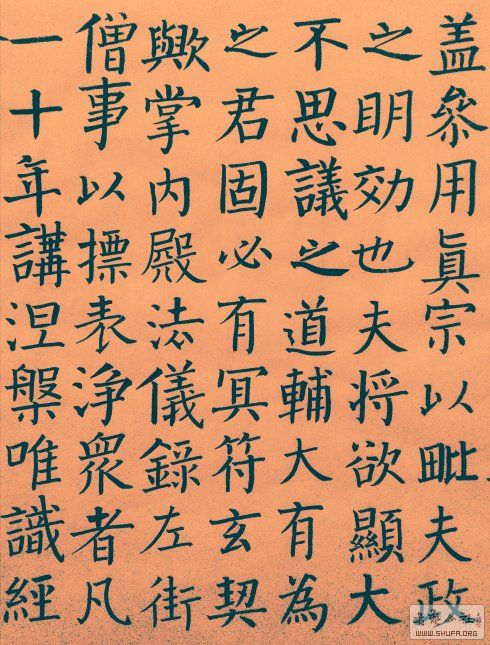 盖參用眞宗以毗夫政
之明効也夫将欲顯大
不思議之道輔大有為
之君固必有冥符玄契
歟掌内殿法儀錄左街
僧事以摽表浄衆者凡
一十年講涅槃唯識經
WWW.SHUFA.ORG